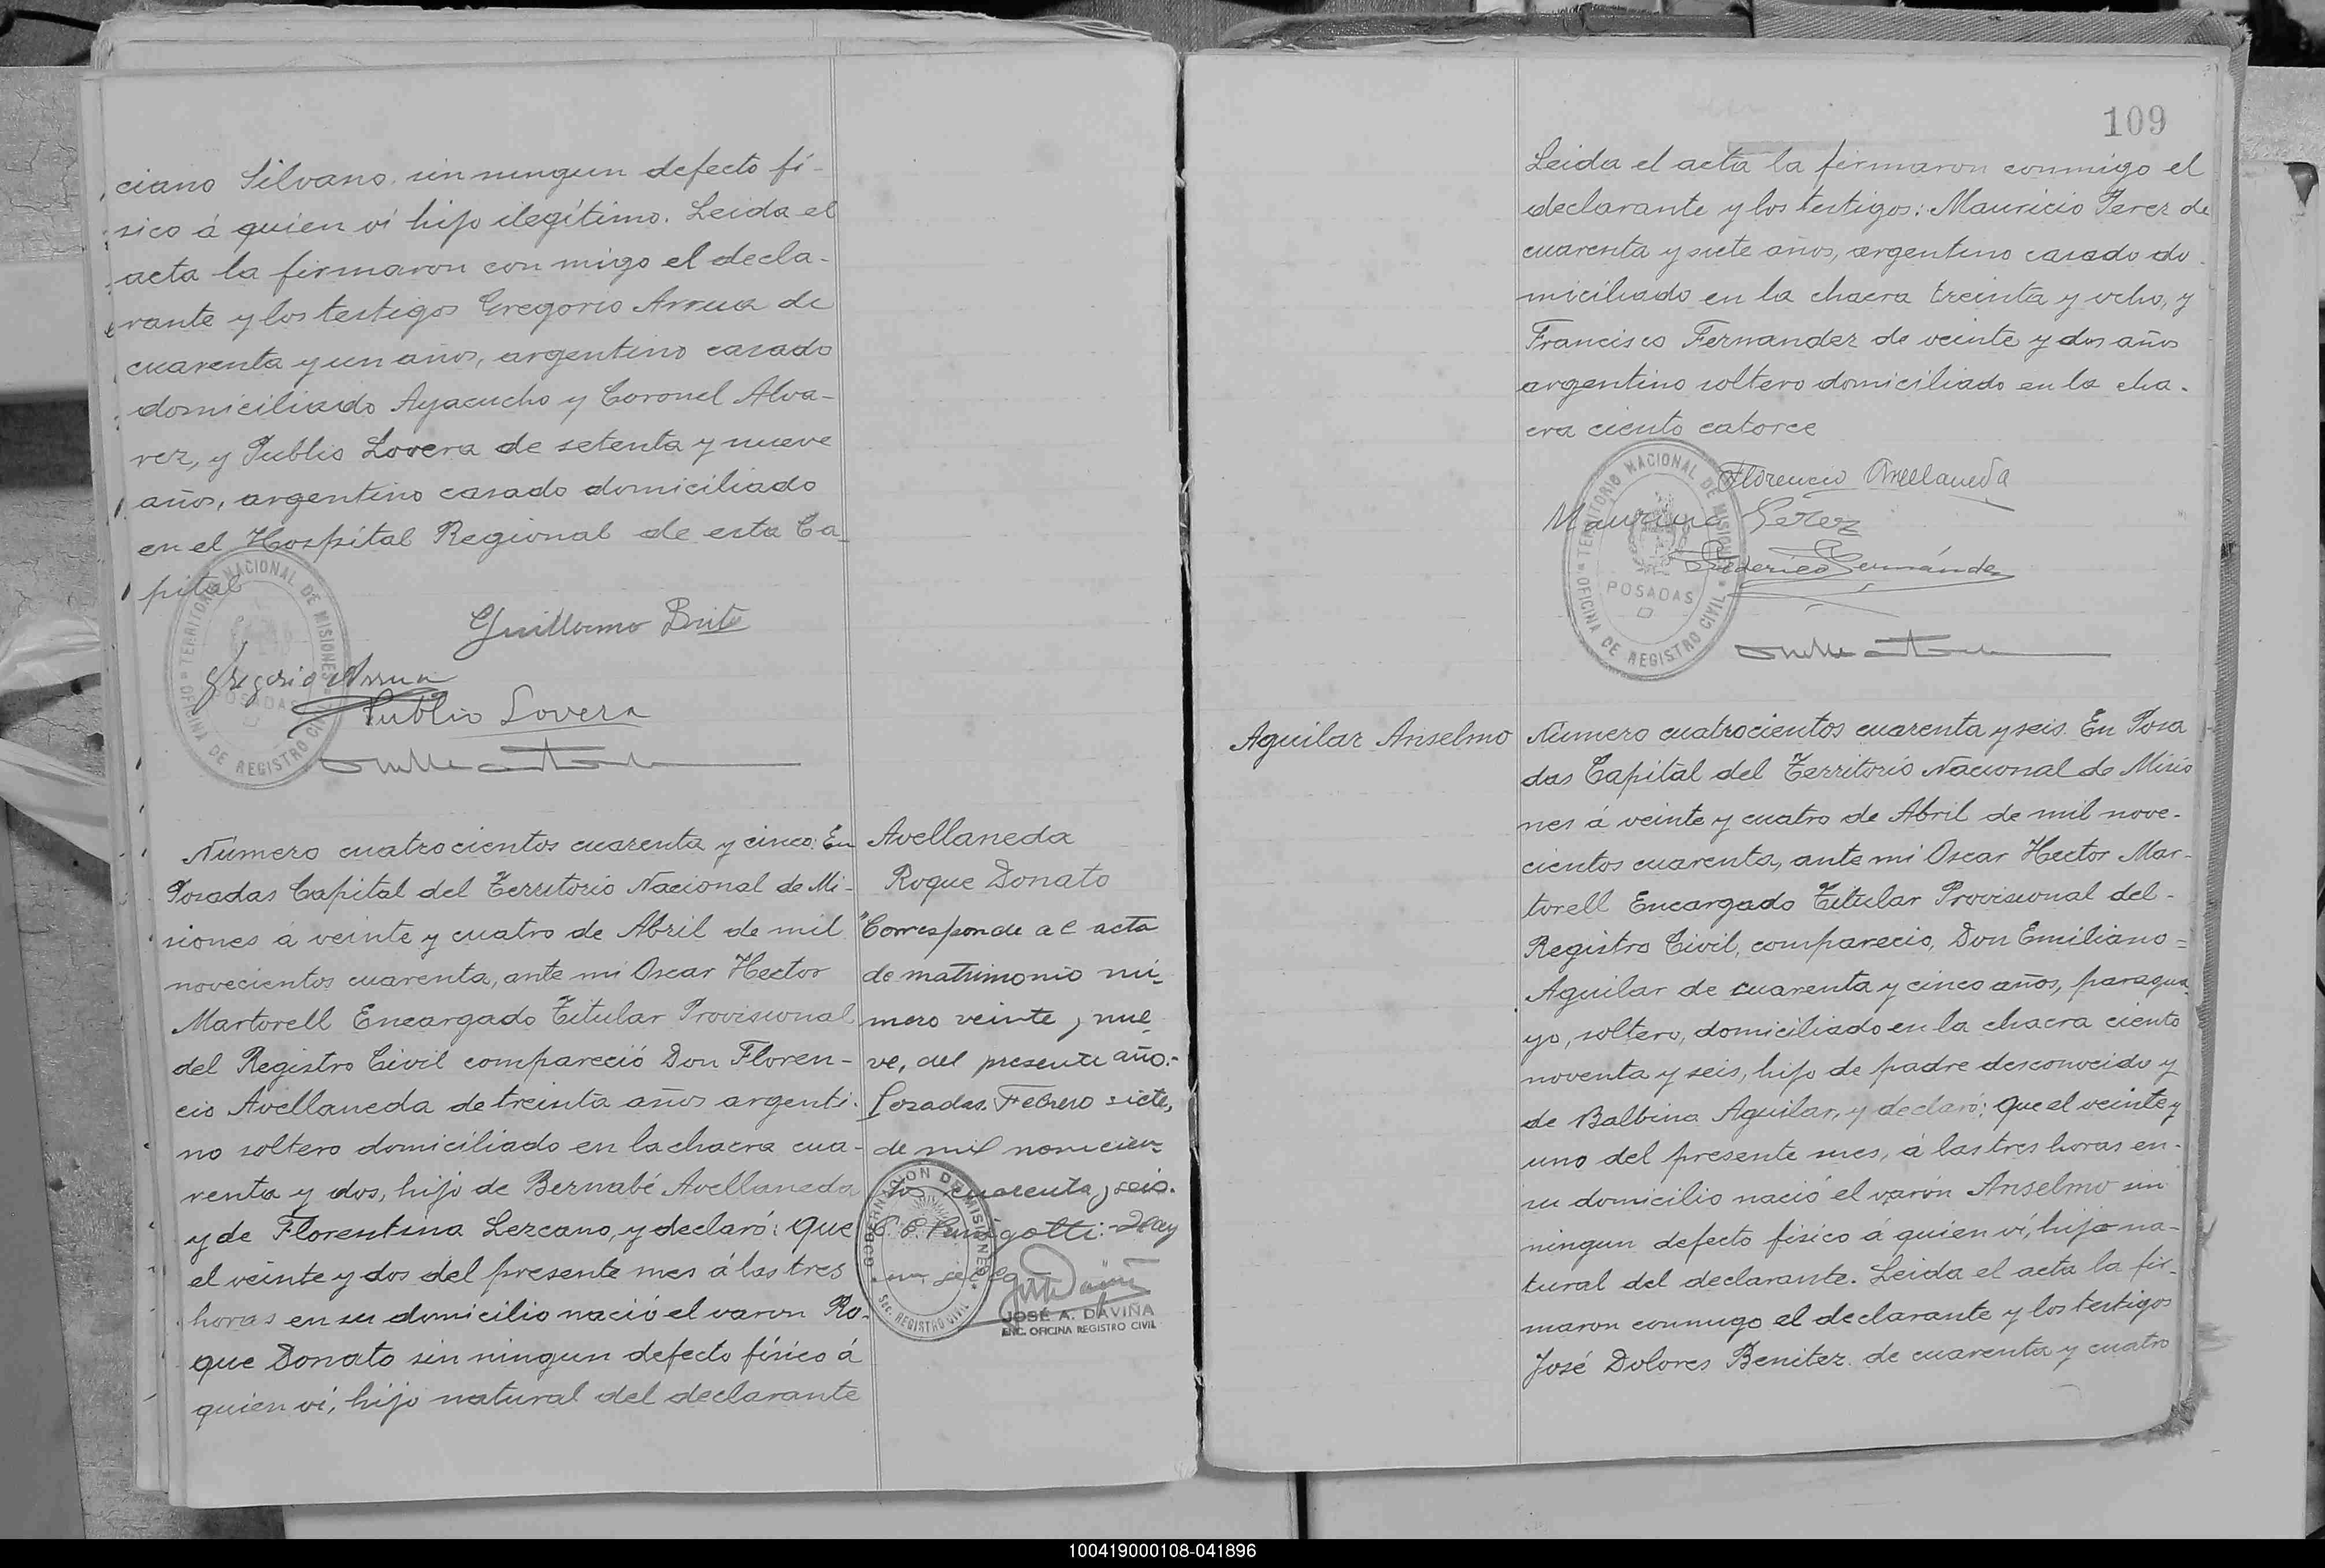 ciano Silvano sin ningun defecto fí-
sico á quien ví hijo ilegítimo. Leida el
acta la firmaron con migo el decla-
rante y los testigos Gregorio Arrua de
cuarenta y un años, argentino casado
domiciliado Ayacucho y Coronel Alva-
rez, y Publio Lovera de setenta y nueve
años, argentino casado domiciliado
en el Hospital Regional de esta Ca-
pital
TERRITORIO NACIONAL DE MISIONES
POSADAS
OFICINA DE REGISTRO CIVIL
Guillermo Brite
Gregorio Arrua
Publio Lovera
Número cuatrocientos cuarenta y cinco: En
Posadas Capital del Territorio Nacional de Mi-
siones á veinte y cuatro de Abril de mil
novecientos cuarenta, ante mi Oscar Hector
Martorell Encargado Titular Provisional
del Registro Civil compareció Don Floren-
cio Avellaneda de treinta años argenti-
no soltero domiciliado en la chacra cua-
renta y dos, hijo de Bernabé Avellaneda
y de Florentina Lezcano, y declaró: Que
el veinte y dos del presente mes á las tres
horas en su domicilio nació el varon Ro-
que Donato sin ningun defecto físico á
quien ví, hijo natural del declarante
Avellaneda
Roque Donato
"Corresponde al acta
de matrimonio nú-
mero veinte y nue-
ve, del presente año.-
Posadas. Febrero siete,
de mil novecien-
tos cuarenta y seis.
Hay
un sello
GOBERNACION DE MISIONES
Sec. REGISTRO CIVIL
JOSÉ A. DAVIÑA
ENC. OFICINA REGISTRO CIVIL
109
Leida el acta la firmaron conmigo el
declarante y los testigos: Mauricio Perez de
cuarenta y siete años, argentino casado do-
miciliado en la chacra treinta y ocho, y
Francisco Fernandez de veinte y dos años
argentino soltero domiciliado en la cha-
cra ciento catorce
TERRITORIO NACIONAL DE MISIONES
POSADAS
OFICINA DE REGISTRO CIVIL
Florencio Avellaneda
Mauricio Perez
Federico Fernández
Aguilar Anselmo
Número cuatrocientos cuarenta y seis. En Posa
das Capital del Territorio Nacional de Misio
nes á veinte y cuatro de Abril de mil nove-
cientos cuarenta, ante mi Oscar Hector Mar-
torell Encargado Titular Provisional del-
Registro Civil, comparecio, Don Emiliano=
Aguilar de cuarenta y cinco años, paragua-
yo, soltero, domiciliado en la chacra ciento
noventa y seis, hijo de padre desconocido y
de Balbina Aguilar, y declaró: Que el veinte y
uno del presente mes, á las tres horas en-
su domicilio nació el varón Anselmo sin
ningun defecto fisico á quien ví, hijo na-
tural del declarante. Leida el acta la fir-
maron conmigo el declarante y los testigos
José Dolores Benitez de cuarenta y cuatro
100419000108-041896